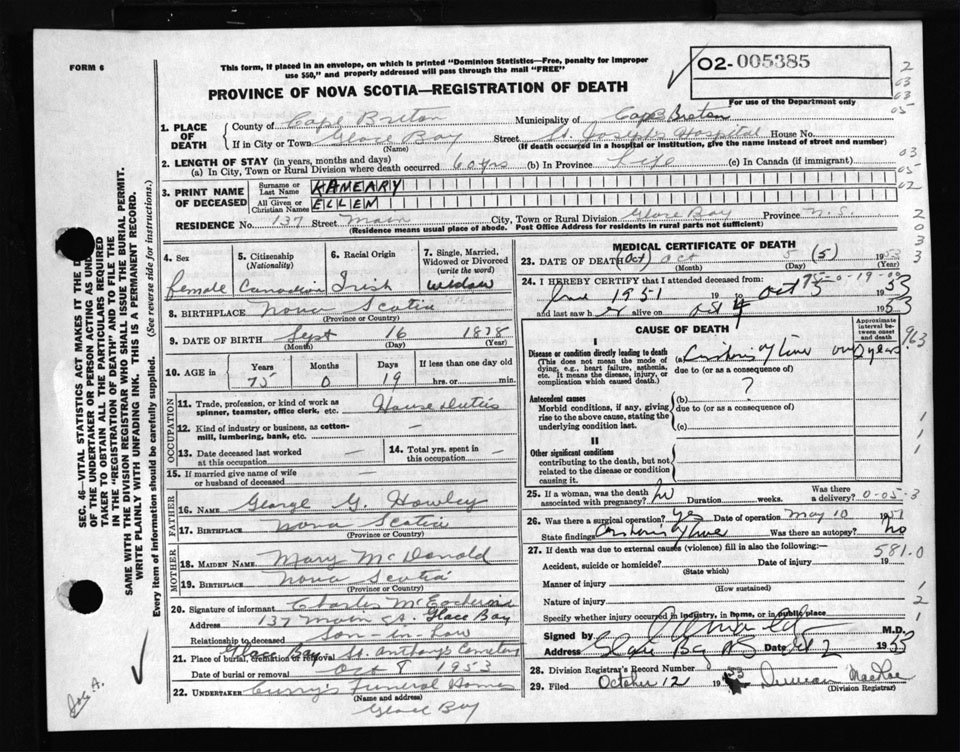 FORM 6
This form, if placed in an envelope, on which is printed "Dominion Statistics—Free, penalty for improper
use $50," and properly addressed will pass through the mail "FREE"
02-005385
For use of the Department only
PROVINCE OF NOVA SCOTIA—REGISTRATION OF DEATH
1. PLACE OF DEATH
County of Cape Breton Municipality of Cape Breton
If in City or Town Glace Bay Street St. Joseph's Hospital House No.
(Name) (If death occurred in a hospital or institution, give the name instead of street and number)
2. LENGTH OF STAY (in years, months and days)
(a) In City, Town or Rural Division where death occurred 60 yrs (b) In Province Life (c) In Canada (if immigrant)
3. PRINT NAME OF DECEASED
Surname or Last Name KAMEARY
All Given or Christian Names ELLEN
RESIDENCE No. 137 Street Main City, Town or Rural Division Glace Bay Province N.S.
(Residence means usual place of abode. Post Office Address for residents in rural parts not sufficient)
4. Sex
female
5. Citizenship
(Nationality)
Canadian
6. Racial Origin
Irish
7. Single, Married,
Widowed or Divorced
(write the word)
widow
8. BIRTHPLACE Nova Scotia
(Province or Country)
9. DATE OF BIRTH Sept 16 1878
(Month) (Day) (Year)
10. AGE in
Years Months Days If less than one day old
75 0 19 hrs. or min.
OCCUPATION
11. Trade, profession or kind of work as
spinner, teamster, office clerk, etc. House Duties
12. Kind of industry or business, as cotton-
mill, lumbering, bank, etc. —
13. Date deceased last worked
at this occupation —
14. Total yrs. spent in
this occupation —
15. If married give name of wife
or husband of deceased —
FATHER
16. NAME George G. Howley
17. BIRTHPLACE Nova Scotia
(Province or Country)
MOTHER
18. MAIDEN NAME Mary McDonald
19. BIRTHPLACE Nova Scotia
(Province or Country)
20. Signature of informant Charles McEachern
Address 137 Main St. Glace Bay
Relationship to deceased Son-in-law
21. Place of burial, cremation or removal Glace Bay St. Anthony's Cemetery
Date of burial or removal Oct 8 1953
22. UNDERTAKER Curry's Funeral Home
(Name and address)
Glace Bay
MEDICAL CERTIFICATE OF DEATH
23. DATE OF DEATH (Oct) Oct 5 (5) 1953
(Month) (Day) (Year)
24. I HEREBY CERTIFY that I attended deceased from:
1951 19 to Oct 5 1953
and last saw her alive on Oct 4 1953
75-0-19-03
CAUSE OF DEATH
Approximate interval between onset and death
I
Disease or condition directly leading to death
(This does not mean the mode of
dying, e.g., heart failure, asthenia,
etc. It means the disease, injury, or
complication which caused death.)
(a) Cirrhosis of Liver over 2 years.
due to (or as a consequence of)
?
Antecedent causes
Morbid conditions, if any, giving
rise to the above cause, stating the
underlying condition last.
(b)
due to (or as a consequence of)
(c)
II
Other significant conditions
contributing to the death, but not
related to the disease or condition
causing it.
25. If a woman, was the death
associated with pregnancy? No Duration weeks. Was there a delivery? 0-05-3
26. Was there a surgical operation? Yes Date of operation May 10 1951
State findings Cirrhosis of Liver Was there an autopsy? No
27. If death was due to external causes (violence) fill in also the following:—
581.0
Accident, suicide or homicide? Date of injury 19
(State which)
Manner of injury
(How sustained)
Nature of injury
Specify whether injury occurred in industry, in home, or in public place
Signed by M.D.
Address Glace Bay NS Date Oct 1953
28. Division Registrar's Record Number
29. Filed October 12 1953 Duncan MacRae
(Division Registrar)
SEC. 46—VITAL STATISTICS ACT MAKES IT THE D
OF THE UNDERTAKER OR PERSON ACTING AS UND
TAKER TO OBTAIN ALL THE PARTICULARS REQUIRED
IN THE "REGISTRATION OF DEATH" AND TO FILE THE
SAME WITH THE DIVISION REGISTRAR WHO SHALL ISSUE THE BURIAL PERMIT.
WRITE PLAINLY WITH UNFADING INK. THIS IS A PERMANENT RECORD.
Every item of information should be carefully supplied. (See reverse side for instructions.)
Jos A.
2
03
03
05
03
05
02
2
0
3
3
963
1
1
1
2
1